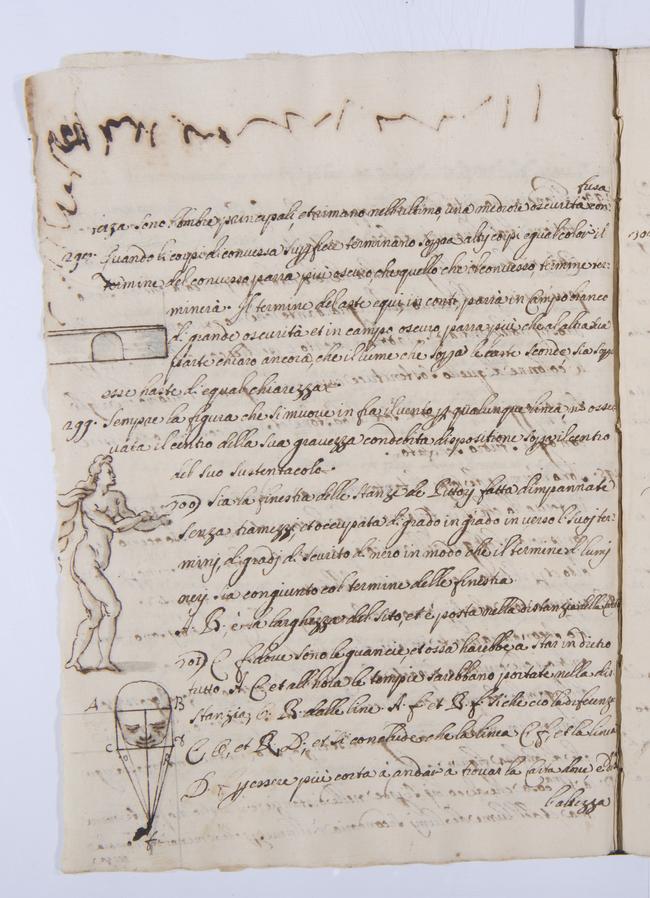 fusa
sono l'ombre principali, et rimano nell'ultimo una mediocre oscurità con
298. Quando li corpi di convessa superficie terminano sopra altri corpi equal color: il
termine del convesso parrà più oscuro che quello che col convesso termine ter-
minerà. Il termine del aste equi in conti, parrà in campo bianco
di grande oscurità et in campo oscuro, parrà più che al altra sua
parte chiaro ancora, che il lume che sopra le aste scende sia sopra
esse haste di equal chiarezza.
299. Sempre la figura che si muove in fra il vento per qualunque linea non osser-
il centro della sua gravezza con debita dispositione sopra il centro
del suo sustentacolo.
700) Sia la finestra delle stanze de Pittori fatta d'impannate
senza tramezzi, et occupata di grado in grado in verso li suoi ter-
mini di gradi di scurito di nero in modo che il termine di lumi
non sia congiunto col termine delle finestra.
A. B. è la larghezza del sito, et è posta nella distanza della
701) C F. dove sono le guancie, et ossa harebbe a star in dietro
tutto A C et all'hora le tempie sarebbano portate nella di-
stanzia O. R. dalle linee A. f. et B. f. siche ci è la diferenza
C. O, et R. D; et si conclude che la linea C f, et la linea
D. per essere più corta à andar a trovar la carta dove è
l'altezza
A B
C D
O R
F